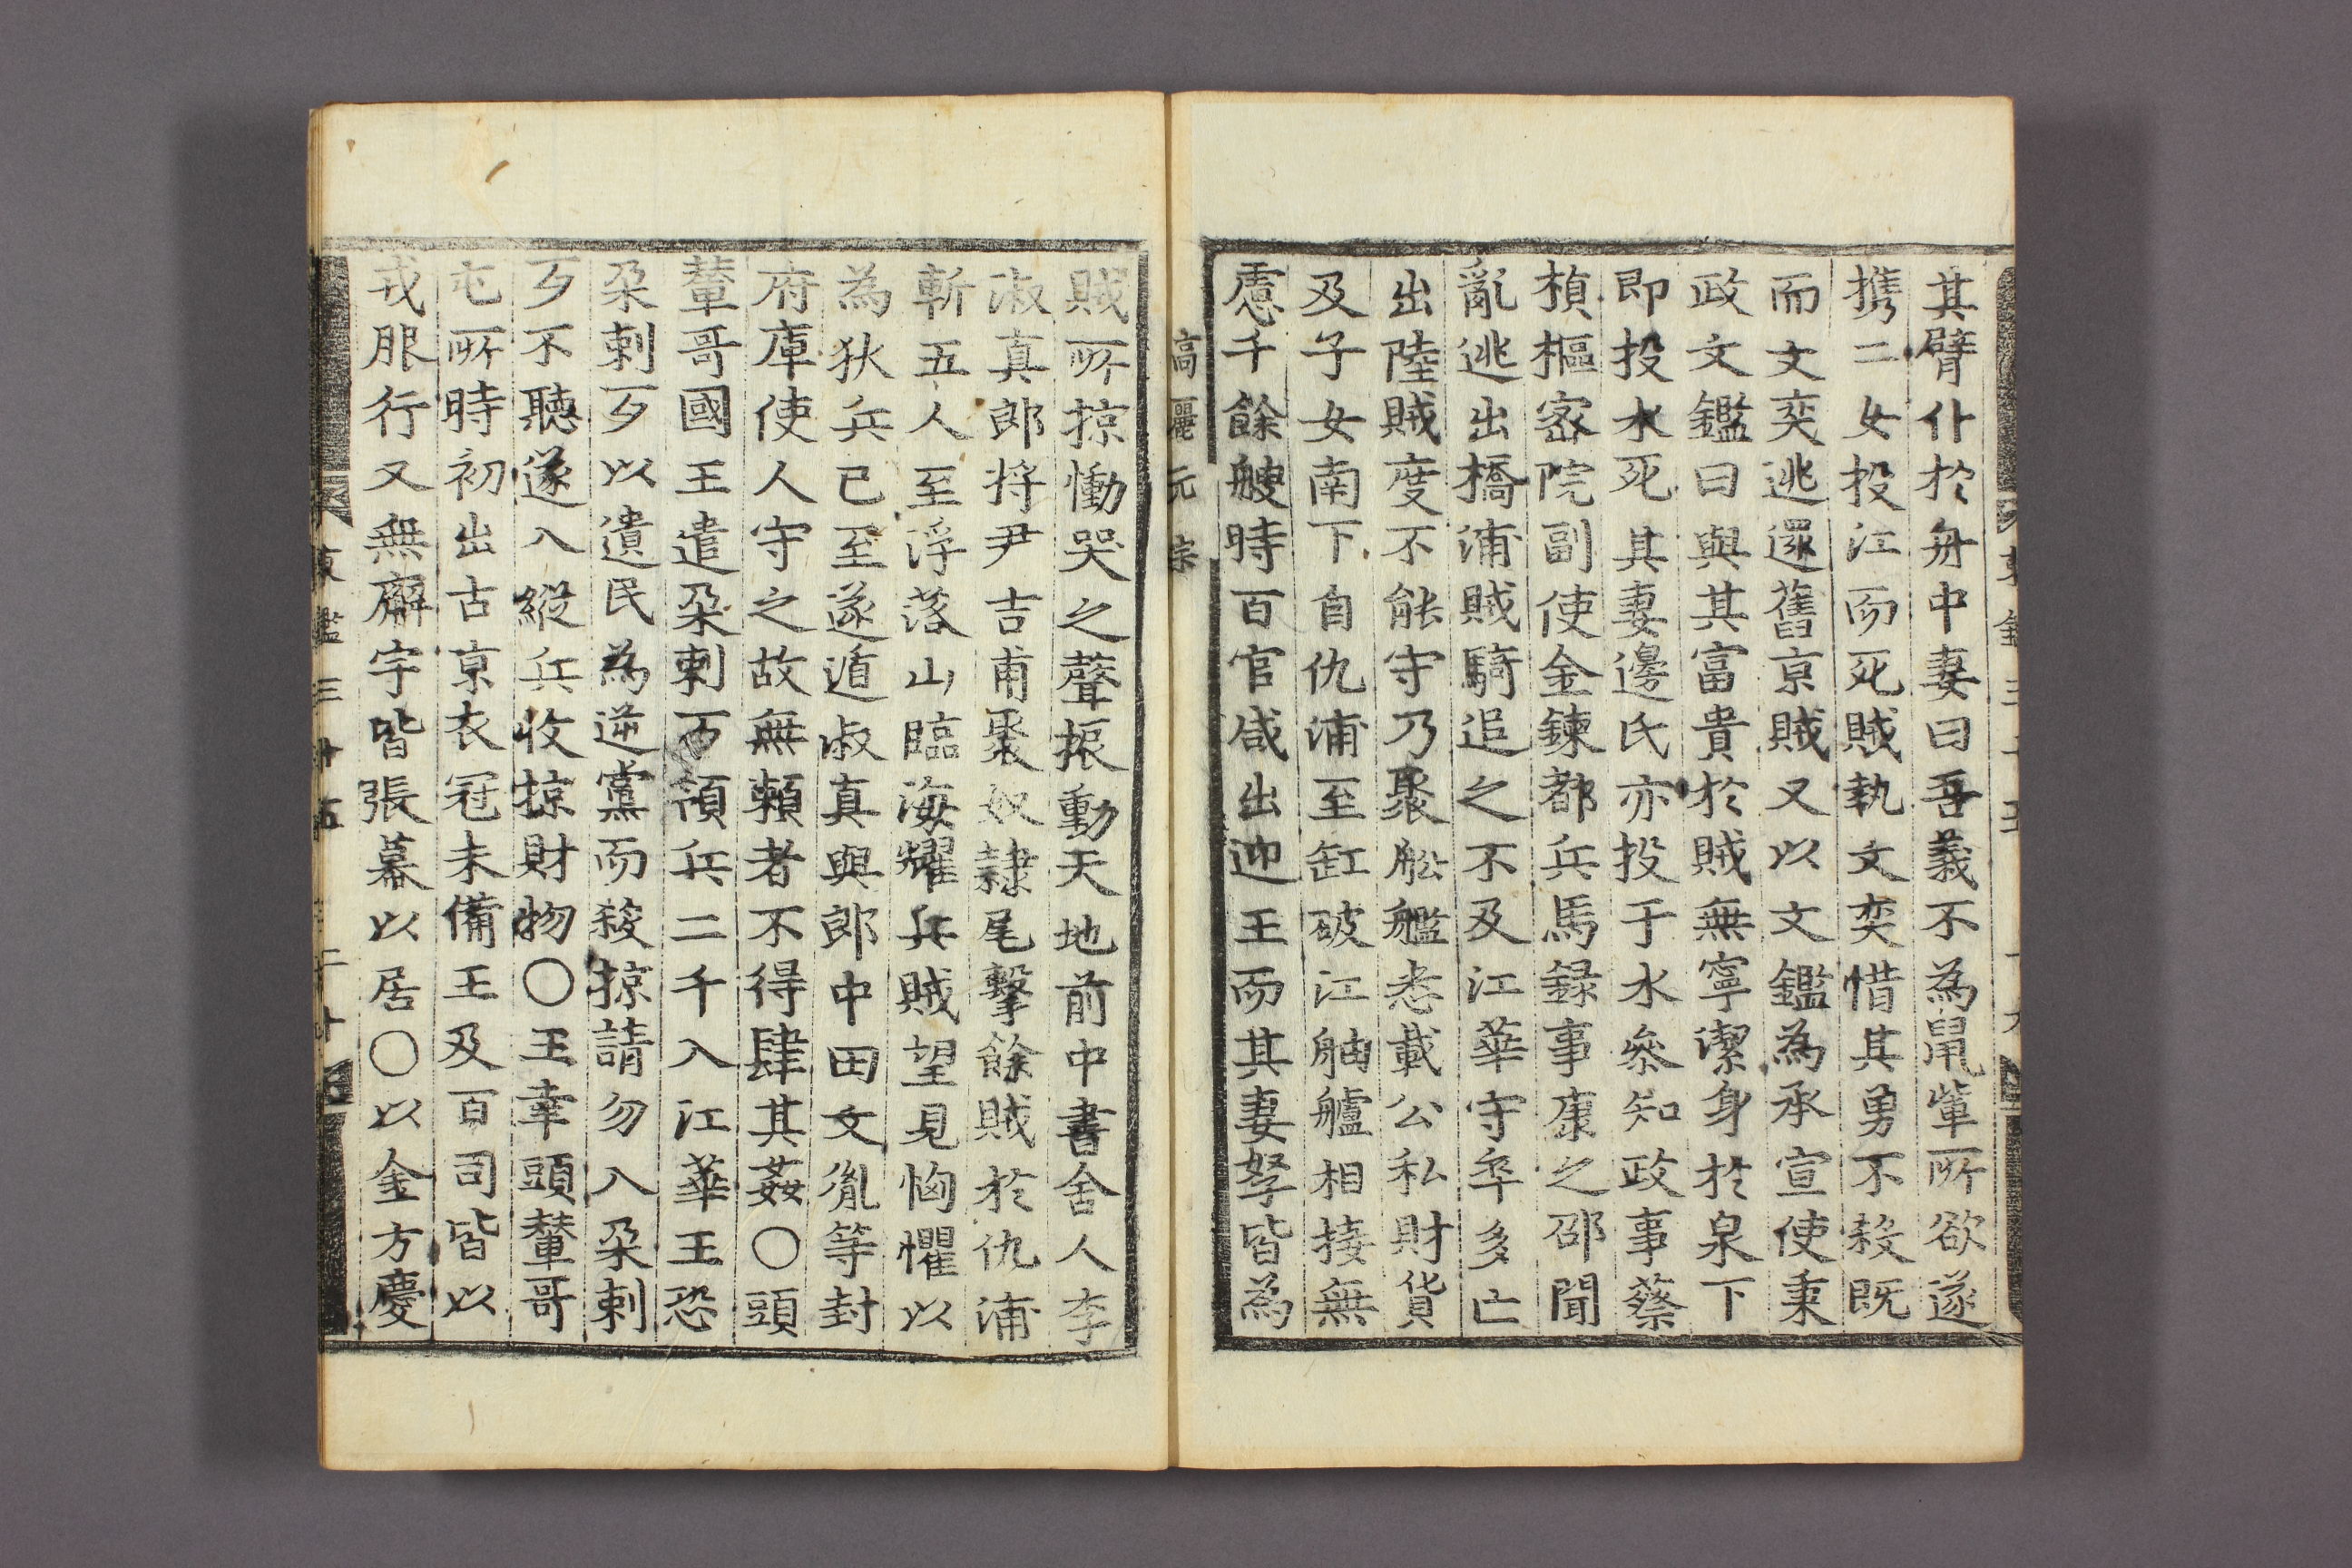 其臂仆於舟中妻曰吾義不為鼠輩所欲遂
携二女投江而死賊執文奕惜其勇不殺既
而文奕逃還舊京賊又以文鑑為承宣使秉
政文鑑曰與其富貴於賊無寧潔身於泉下
即投水死其妻邊氏亦投于水叅知政事蔡
楨樞宻院副使金鍊都兵馬録事康之邵聞
亂逃出橋浦賊騎追之不及江華守卒多亡
出陸賊度不能守乃聚舩艦悉載公私財貨
及子女南下自仇浦至缸破江舳艫相接無
慮千餘艘時百官咸出迎王而其妻孥皆為
高麗元宗
賊所掠慟哭之聲振動天地前中書舍人李
淑真郎将尹吉甫聚奴隷尾擊餘賊於仇浦
斬五人至浮落山臨海耀兵賊望見恟懼以
為狄兵已至遂遁淑真與郎中田文胤等封
府庫使人守之故無賴者不得肆其姦〇頭
輦哥國王遣朶剌歹領兵二千入江華王恐
朶剌歹以遺民為逆黨而殺掠請勿入朶剌
歹不聽遂入縱兵收掠財物〇王幸頭輦哥
屯所時初出古京衣冠未備王及百司皆以
戎服行又無廨宇皆張幕以居〇以金方慶
東鑑三十五 二十